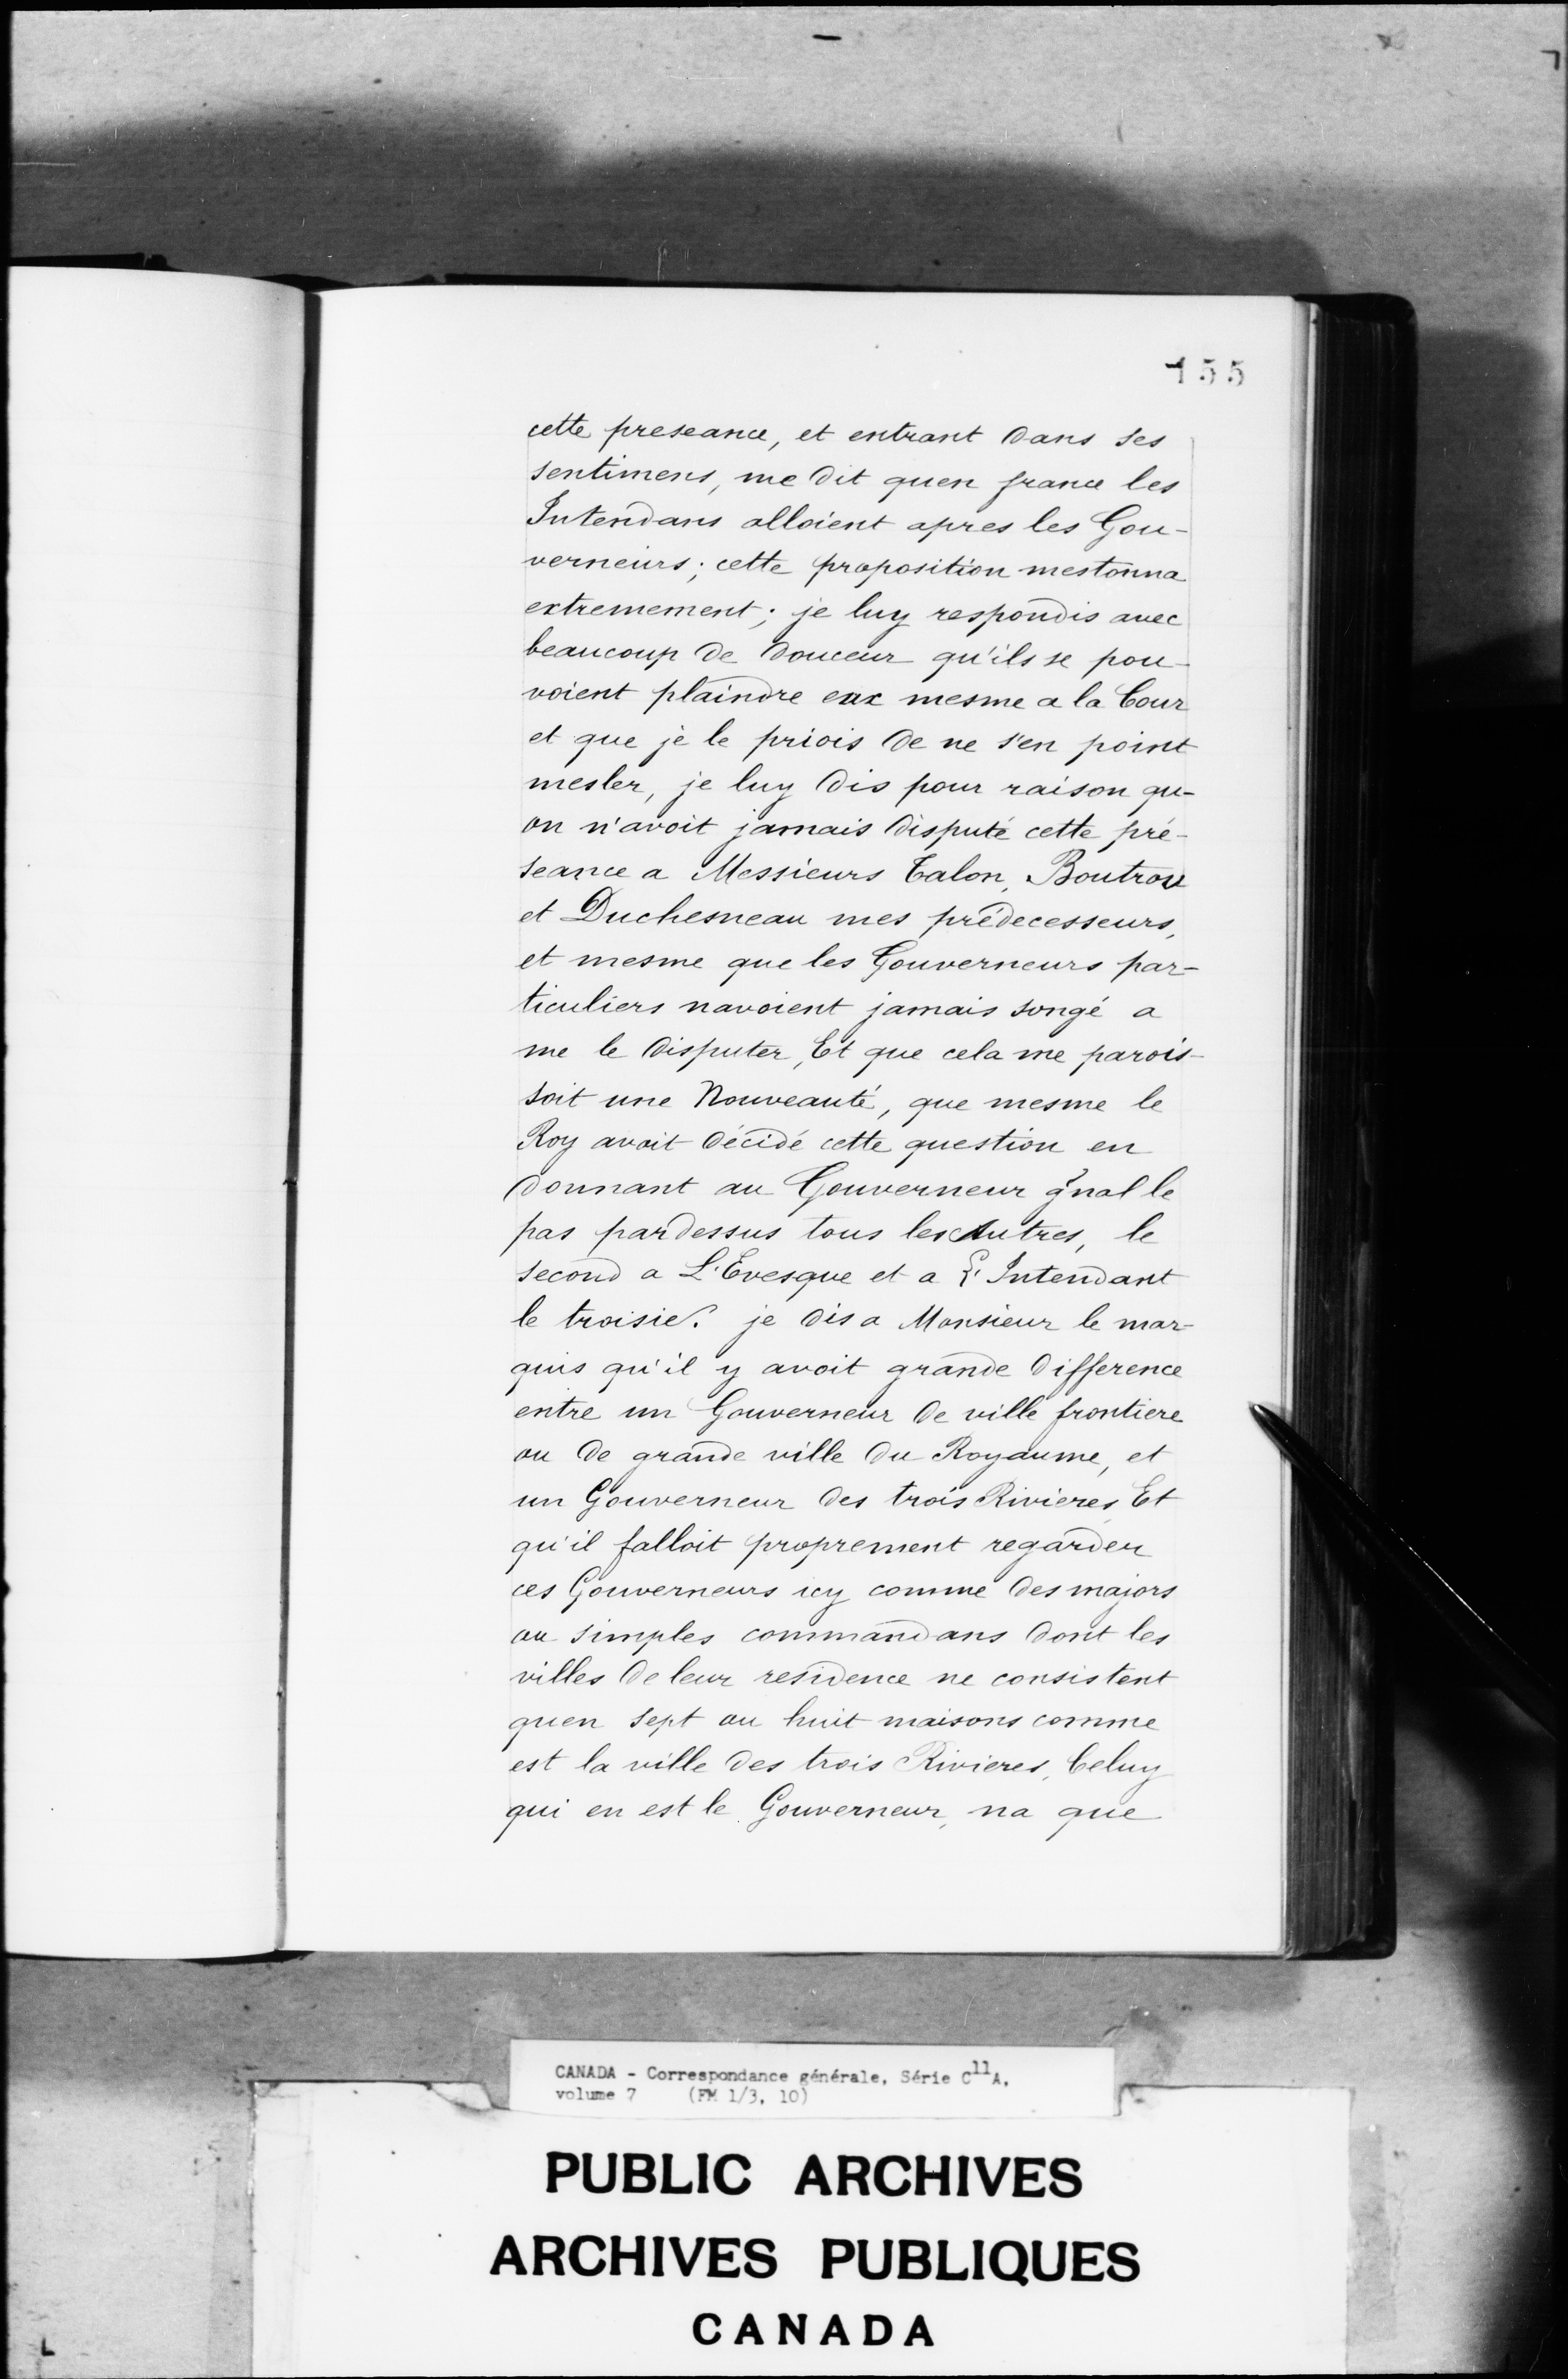 155
cette preseance, et entrant dans ses
sentimens, me dit quen france les
Intendans alloient apres les Gou-
verneurs; cette proposition mestonna
extremement; je luy respondis avec
beaucoup de douceur qu'ils se pou-
voient plaindre eux mesme a la Cour
et que je le priois de ne s'en point
mesler, je luy dis pour raison qu-
on n'avoit jamais disputé cette pré-
seance a Messieurs Talon, Boutrou
et Duchesneau mes prédecesseurs,
et mesme que les Gouverneurs par-
ticuliers navoient jamais songé a
me le disputer, Et que cela me parois-
soit une Nouveauté, que mesme le
Roy avoit décidé cette question en
donnant au Gouverneur gnal le
pas pardessus tous les Autres, le
second a L'Evesque et a L'Intendant
le troisie. je dis a Monsieur le mar-
quis qu'il y avoit grande difference
entre un Gouverneur de ville frontiere
ou de grande ville du Royaume, et
un Gouverneur des trois Rivieres, Et
qu'il falloit proprement regarder
ces Gouverneurs icy comme des majors
ou simples commandans dont les
villes de leur residence ne consistent
quen sept ou huit maisons comme
est la ville des trois Rivieres, Celuy
qui en est le Gouverneur, na que
CANADA - Correspondance générale, Série C11A,
volume 7 (FM 1/3, 10)
PUBLIC ARCHIVES
ARCHIVES PUBLIQUES
CANADA